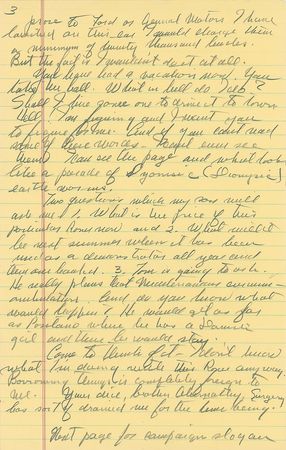 3
prove to Ford or General Motors I have
on this car I would charge them
a minimum of twenty thousand bucks.
But the fact is I wouldn't do it at all.
You have had a vacation now. You
take the ball. What in hell do I do?
Shall I hire some one to drive it to town
Hell I'm figuring and I want you
to figure for me. And if you can't read
some of these words - I can't even see
them. Can see the page and what look
like a parade of (Dionysic)
earth worms.
Two questions which my son will
ask me 1. What is the price of this
particular Rover now and 2. What will it
be next summer when it has been
used as a demonstrator all year and
3. Tom is going to ask.
He really plans that
And do you know what
would happen? He would get as far
as Portland where he has a
girl and there he would stay.
Come to think of it - I don't know
what I'm doing with this Rover anyway.
Borrowing things is completely foreign to
me. Yours died, brother Abernathy, Surgery
has sort of drained me for the time being.
Next page for campaign slogan